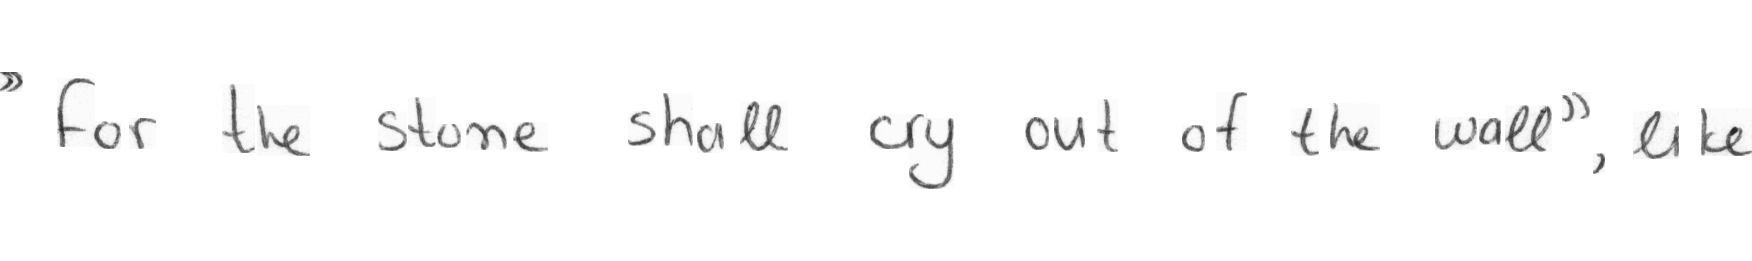 "for the stone shall cry out of the wall", like